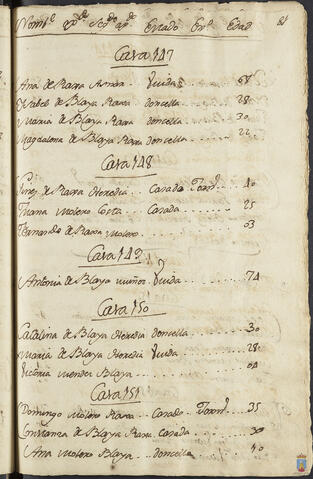 Nombre Pr. Ape. Segdo ap. Estado Exo. Edad 81
Casa 147
Ana de Parra Viuda 68
Ysabel de Blaya Parra doncella 28
Maria de Blaya Parra doncella 30
Magdalena de Blaya Parra doncella 22
Casa 148
Gines de Parra Heredia Casado Jorn.o 40
Juana Molero Cota Casada 25
Fernando de Parra Molero 03
Casa 149
Antonia de Blaya muñoz Viuda 74
Casa 150
Catalina de Blaya Heredia doncella 30
Maria de Blaya Heredia Viuda 28
Victoria Mendez Blaya 04
Casa 151
Domingo Molero Parra Casado Jorn.o 35
Constanza de Blaya Parra Casada 30
Ana Molero Blaya doncella 10